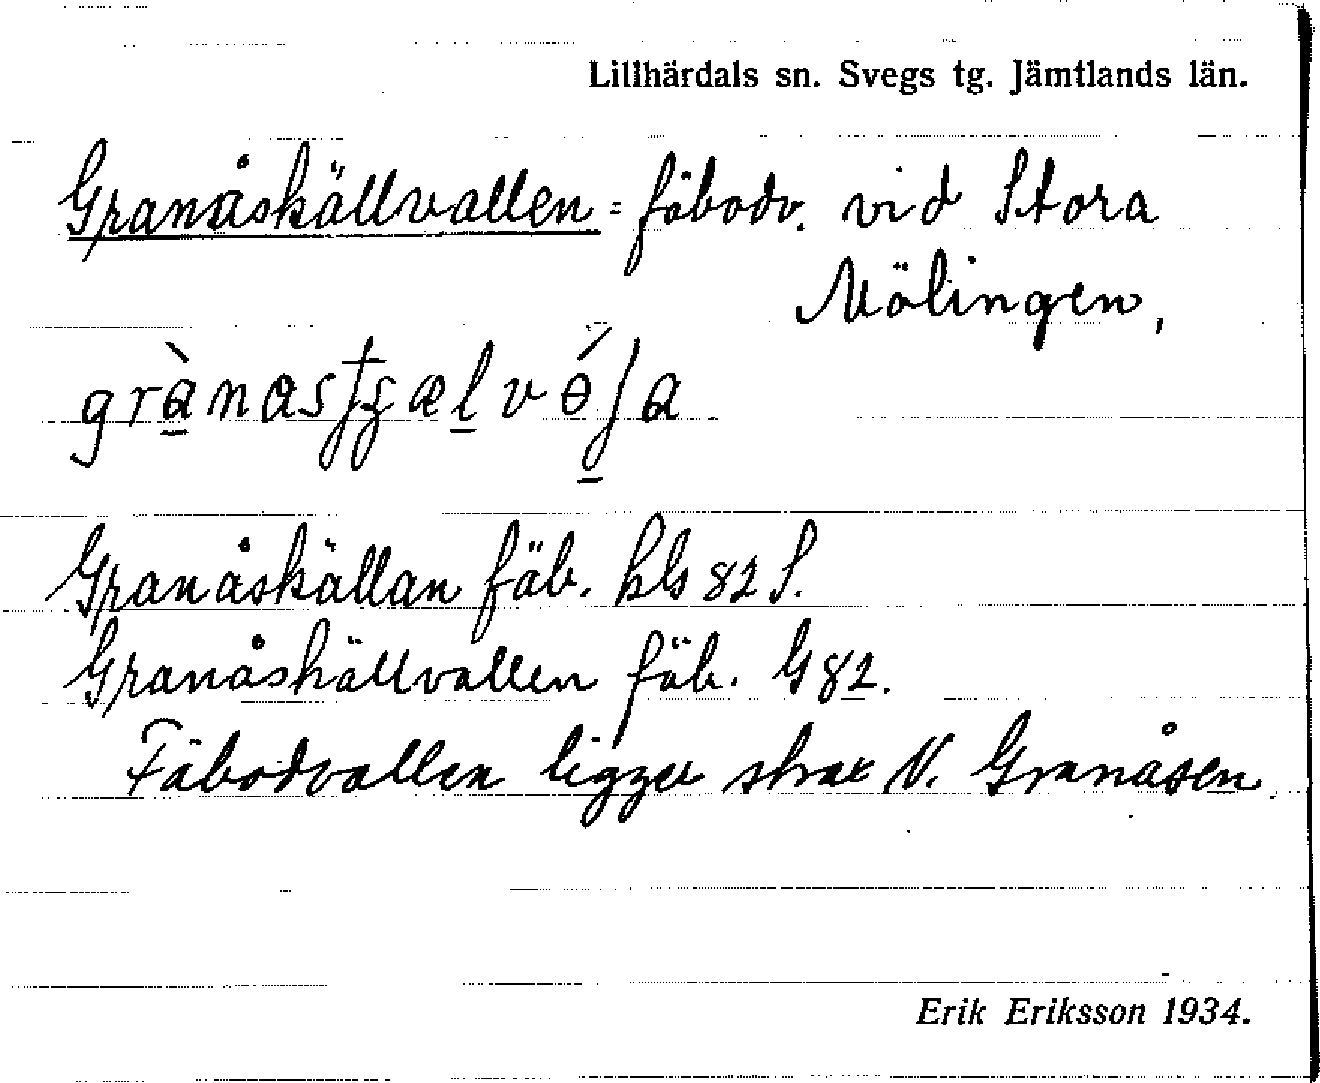 Lillhärdals sn. Svegs tg. Jämtlands län.
Granåskällvallen = fäbodv. vid Stora
Mölingen,
Granåskällan fäb. hls 82 S.
Granåskällvallen fäb. G 82.
Fäbodvallen ligger strax V. Granåsen.
Erik Eriksson 1934.